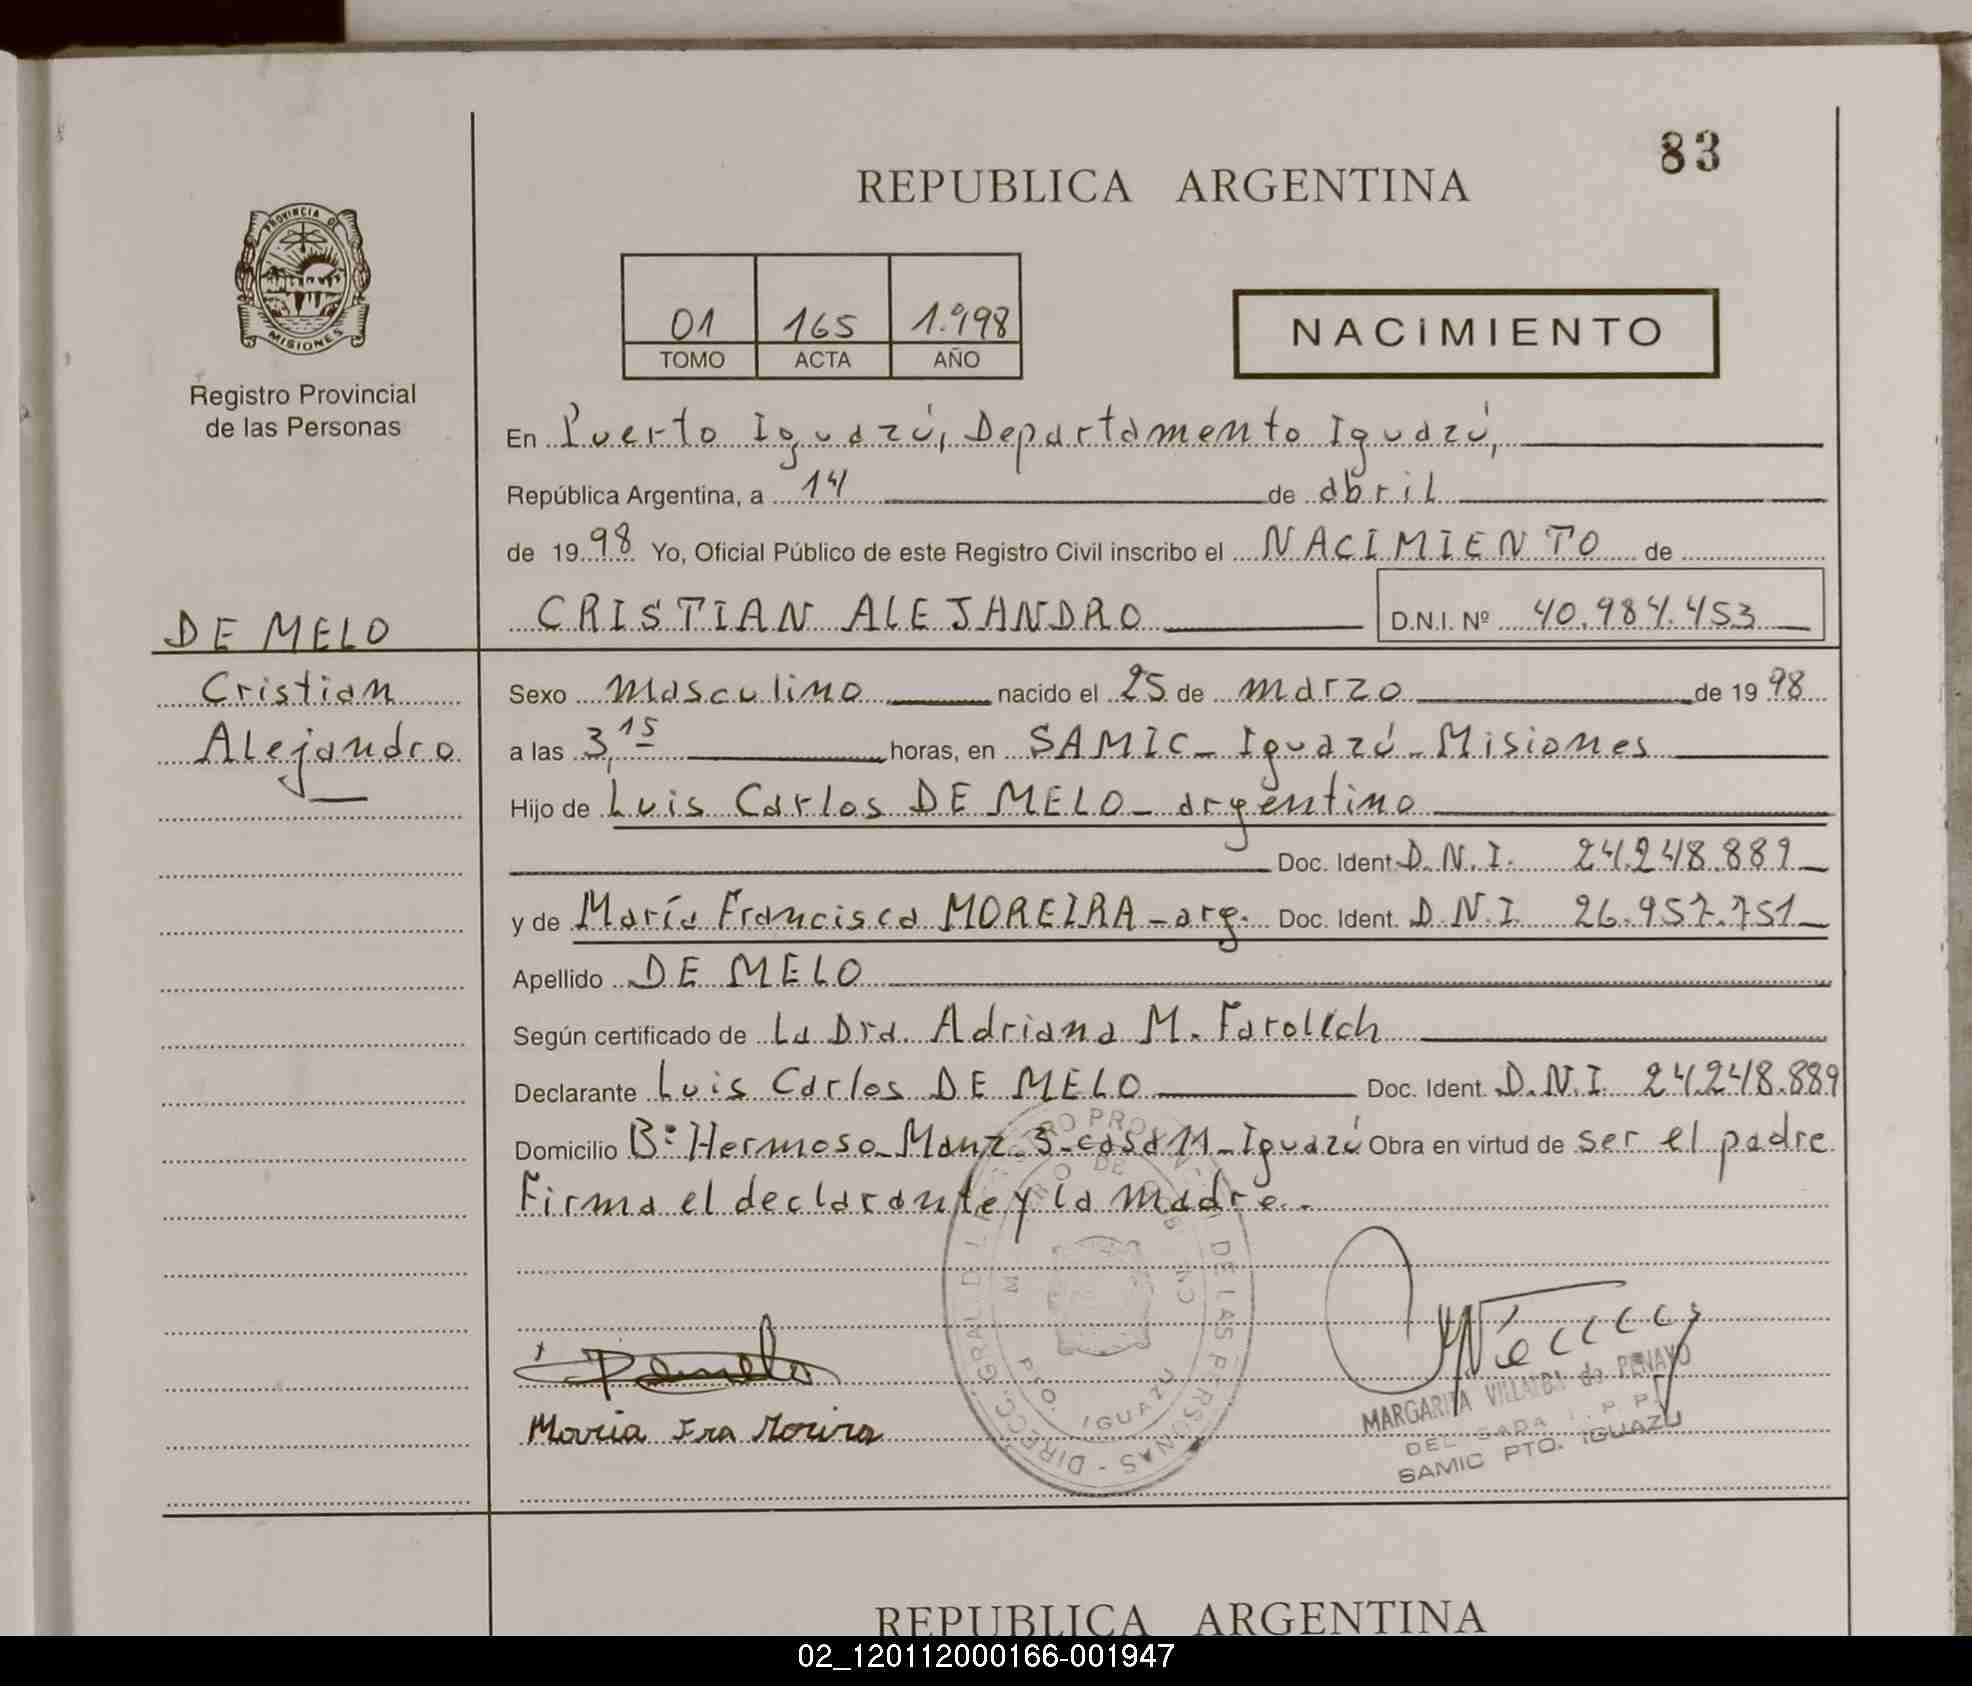 83
REPUBLICA ARGENTINA
PROVINCIA DE
MISIONES
Registro Provincial
de las Personas
01 165 1.998
TOMO ACTA AÑO
NACiMIENTO
En Puerto Iguazú, Departamento Iguazú,
República Argentina, a 14 de abril
de 1998 Yo, Oficial Público de este Registro Civil inscribo el NACIMIENTO de
CRISTIAN ALEJANDRO D.N.I. Nº 40.984.453
DE MELO
Cristian
Alejandro
Sexo masculino nacido el 25 de marzo de 1998
a las 3,15 horas, en SAMIC - Iguazú - Misiones
Hijo de Luis Carlos DE MELO - argentino
Doc. Ident. D.N.I. 24.248.889
y de María Francisca MOREIRA - arg. Doc. Ident. D.N.I. 26.957.751
Apellido DE MELO
Según certificado de La Dra. Adriana M. Farolich
Declarante Luis Carlos DE MELO Doc. Ident. D.N.I. 24.248.889
Domicilio Bº Hermoso - Manz. 3 - casa 11 - Iguazú Obra en virtud de ser el padre
Firma el declarante y la madre.-
Demelo
Maria Fra Morira
DIRECC. GRAL. DEL REGISTRO PROVINCIAL DE LAS PERSONAS
PTO. IGUAZU
MARGARITA VILLALBA de PENAYO
SAMIC PTO. IGUAZU
REPUBLICA ARGENTINA
02_120112000166-001947